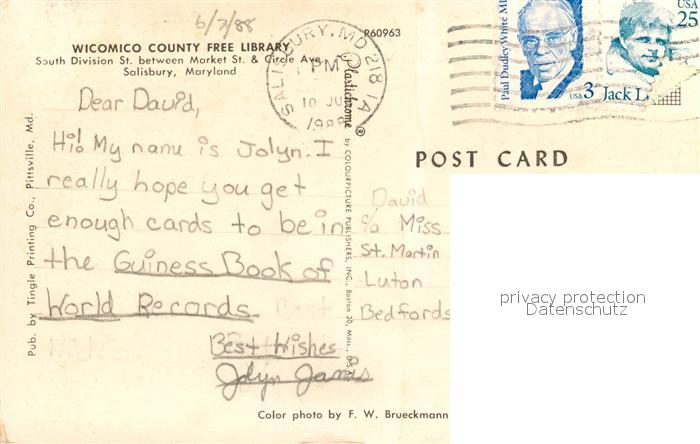 6/7/88
R60963
WICOMICO COUNTY FREE LIBRARY
South Division St. between Market St. & Circle Ave.
Salisbury, Maryland
SALISBURY, MD 218 1A
PM
10 JU
1988
Paul Dudley White MD
USA 3
USA 25
Jack L
Dear David,
Hi! My name is Jolyn. I
really hope you get
enough cards to be in
the Guiness Book of
World Records.
Best Wishes
Jolyn James
Pub. by Tingle Printing Co., Pittsville, Md.
Plastichrome ®
by COLOURPICTURE PUBLISHERS, INC., Boston 30, Mass., U.S.A.
POST CARD
David
c/o Miss
St. Martin
Luton
Bedfords
privacy protection
Datenschutz
Color photo by F. W. Brueckmann